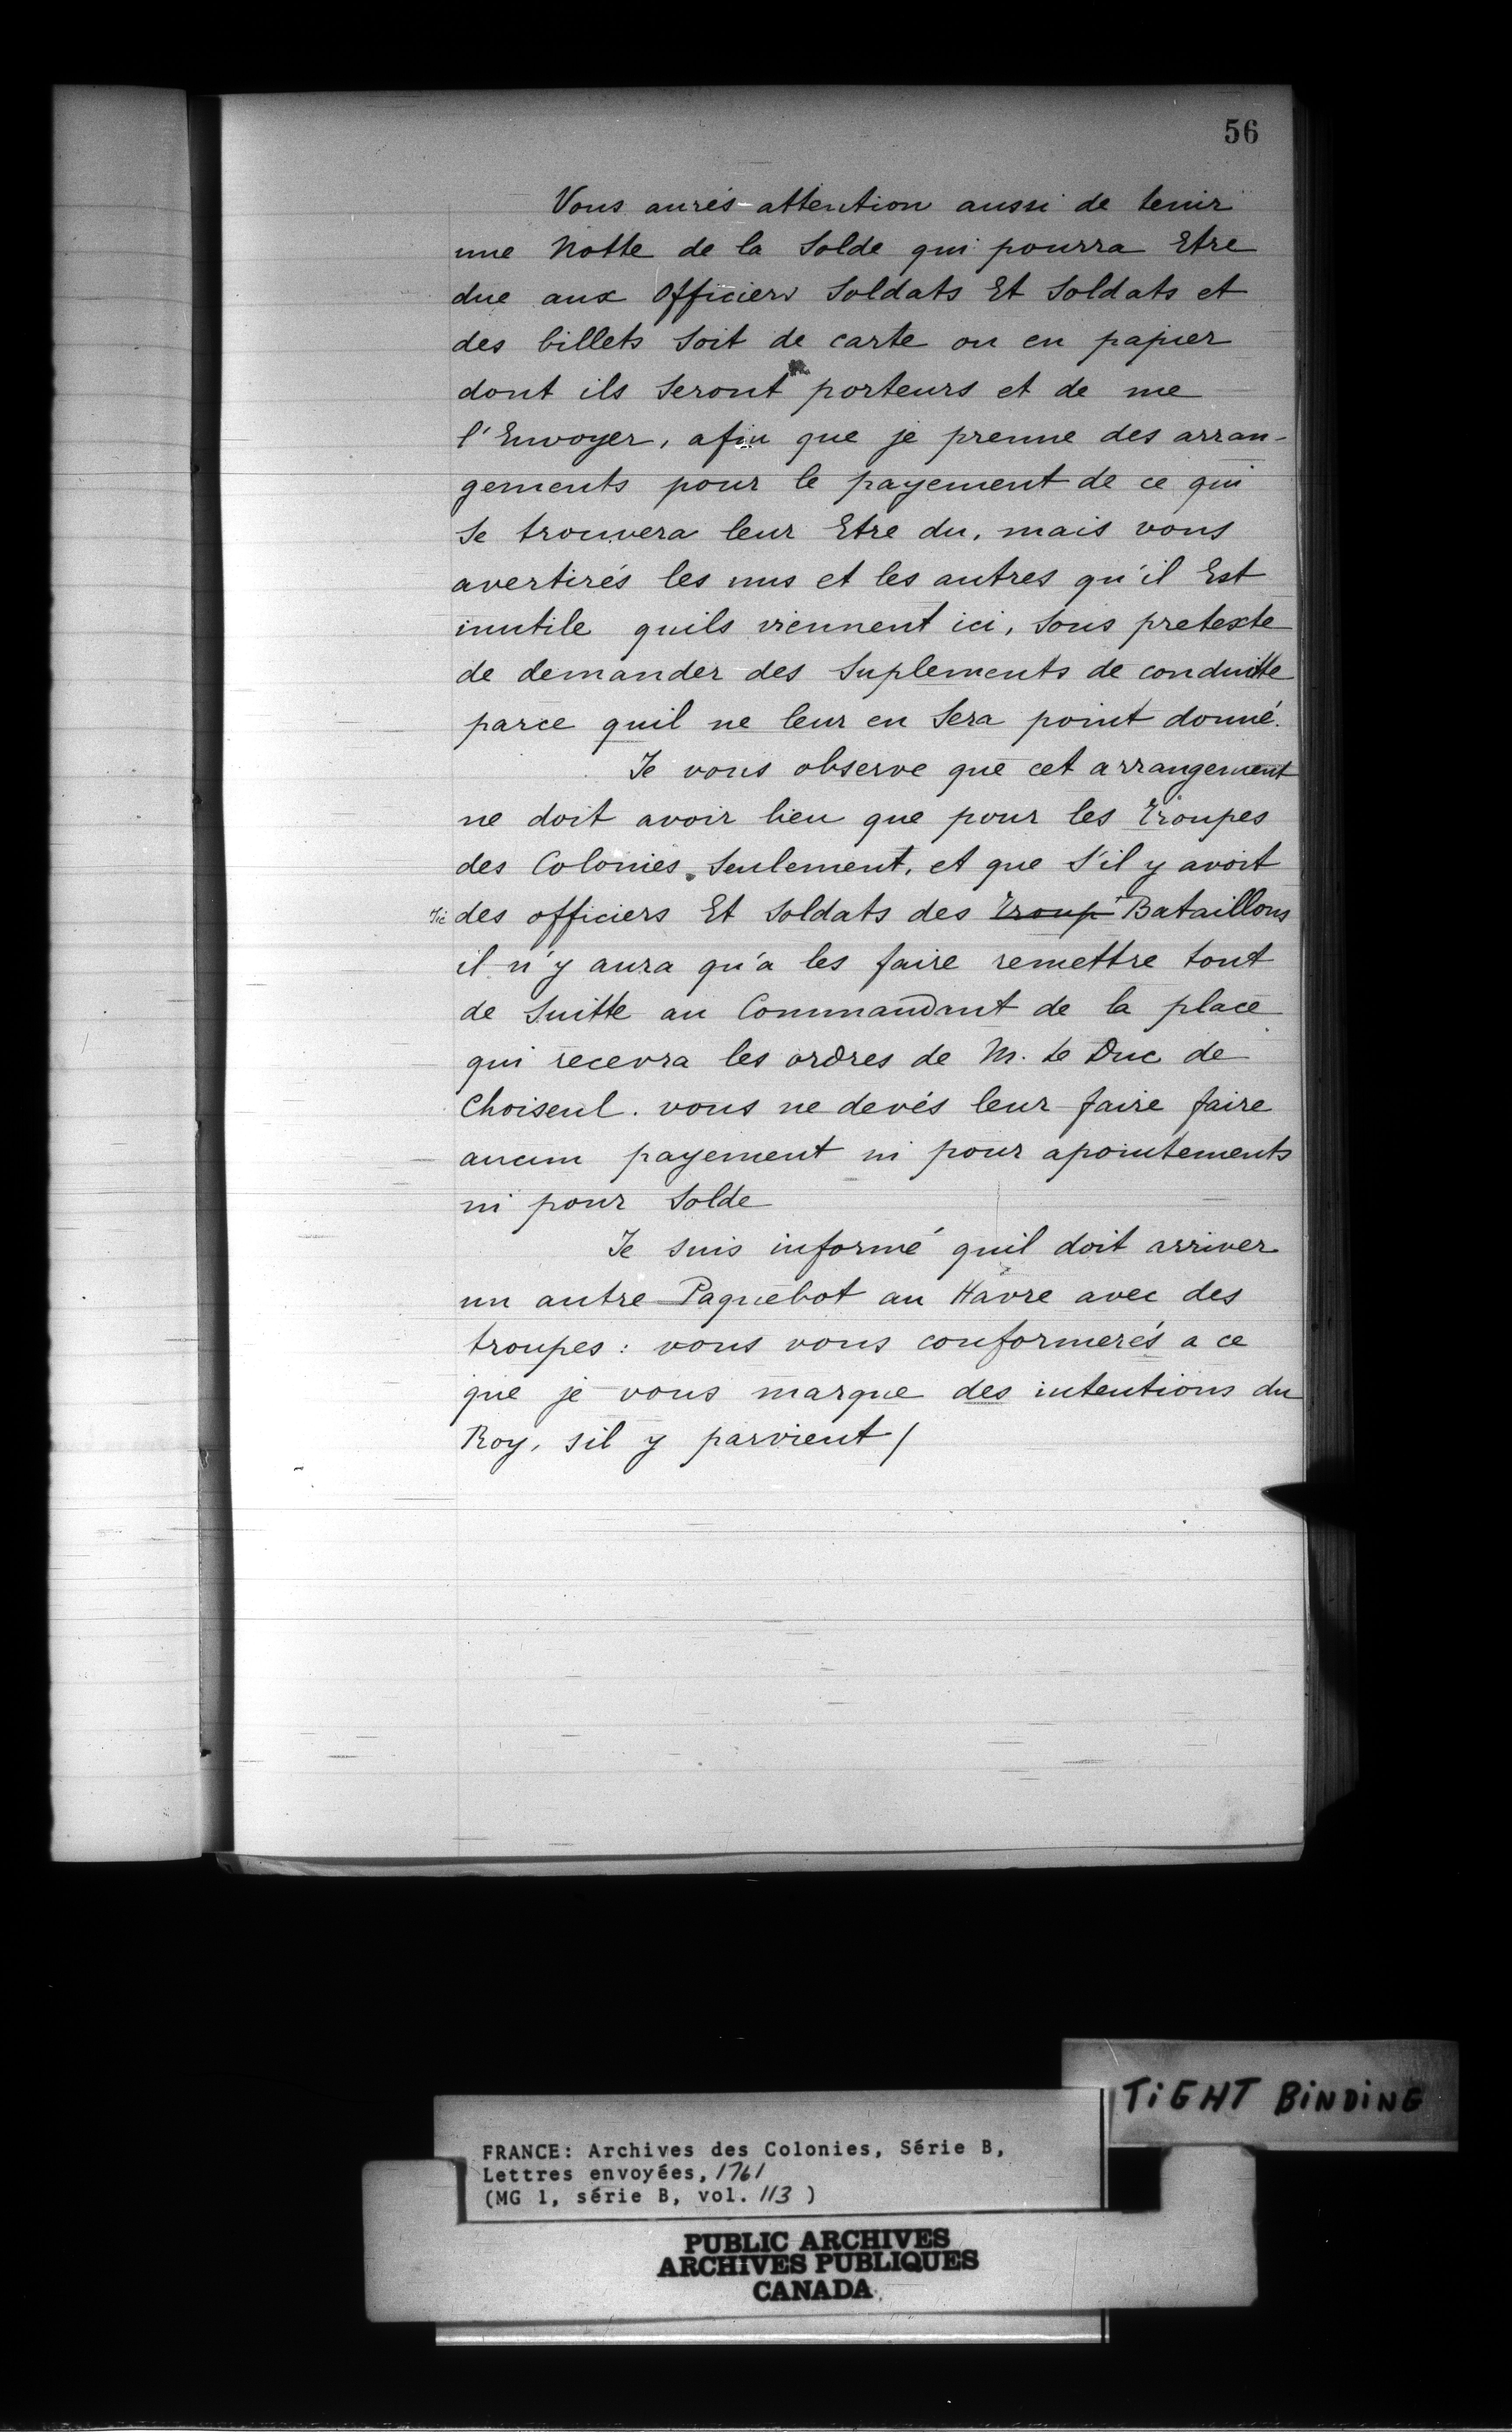 56
Vous aurés attention aussi de tenir
une Notte de la Solde qui pourra Etre
due aux Officiers Soldats Et Soldats et
des billets Soit de carte ou en papier
dont ils Seront porteurs et de me
l'Envoyer, afin que je prenne des arran-
gements pour le payement de ce qui
Se trouvera leur Etre du, mais vous
avertirés les uns et les autres qu'il Est
inutile quils viennent ici, Sous pretexte
de demander des Suplements de conduitte
parce quil ne leur en Sera point donné.
Je vous observe que cet arrangement
ne doit avoir lieu que pour les Troupes
des Colonies Seulement, et que S'il y avoit
Sic des officiers Et Soldats des Troup Bataillons
il n'y aura qu'a les faire remettre tout
de Suitte au Commandant de la place
qui recevra les ordres de M. Le Duc de
Choiseul. vous ne devés leur faire faire
aucun payement ni pour apointements
ni pour Solde
Je suis informé quil doit arriver
un autre Paquebot au Havre avec des
troupes : vous vous conformerés a ce
que je vous marque des intentions du
Roy, sil y parvient /
TiGHT BiNDiNG
FRANCE: Archives des Colonies, Série B,
Lettres envoyées, 1761
(MG 1, série B, vol. 113 )
PUBLIC ARCHIVES
ARCHIVES PUBLIQUES
CANADA